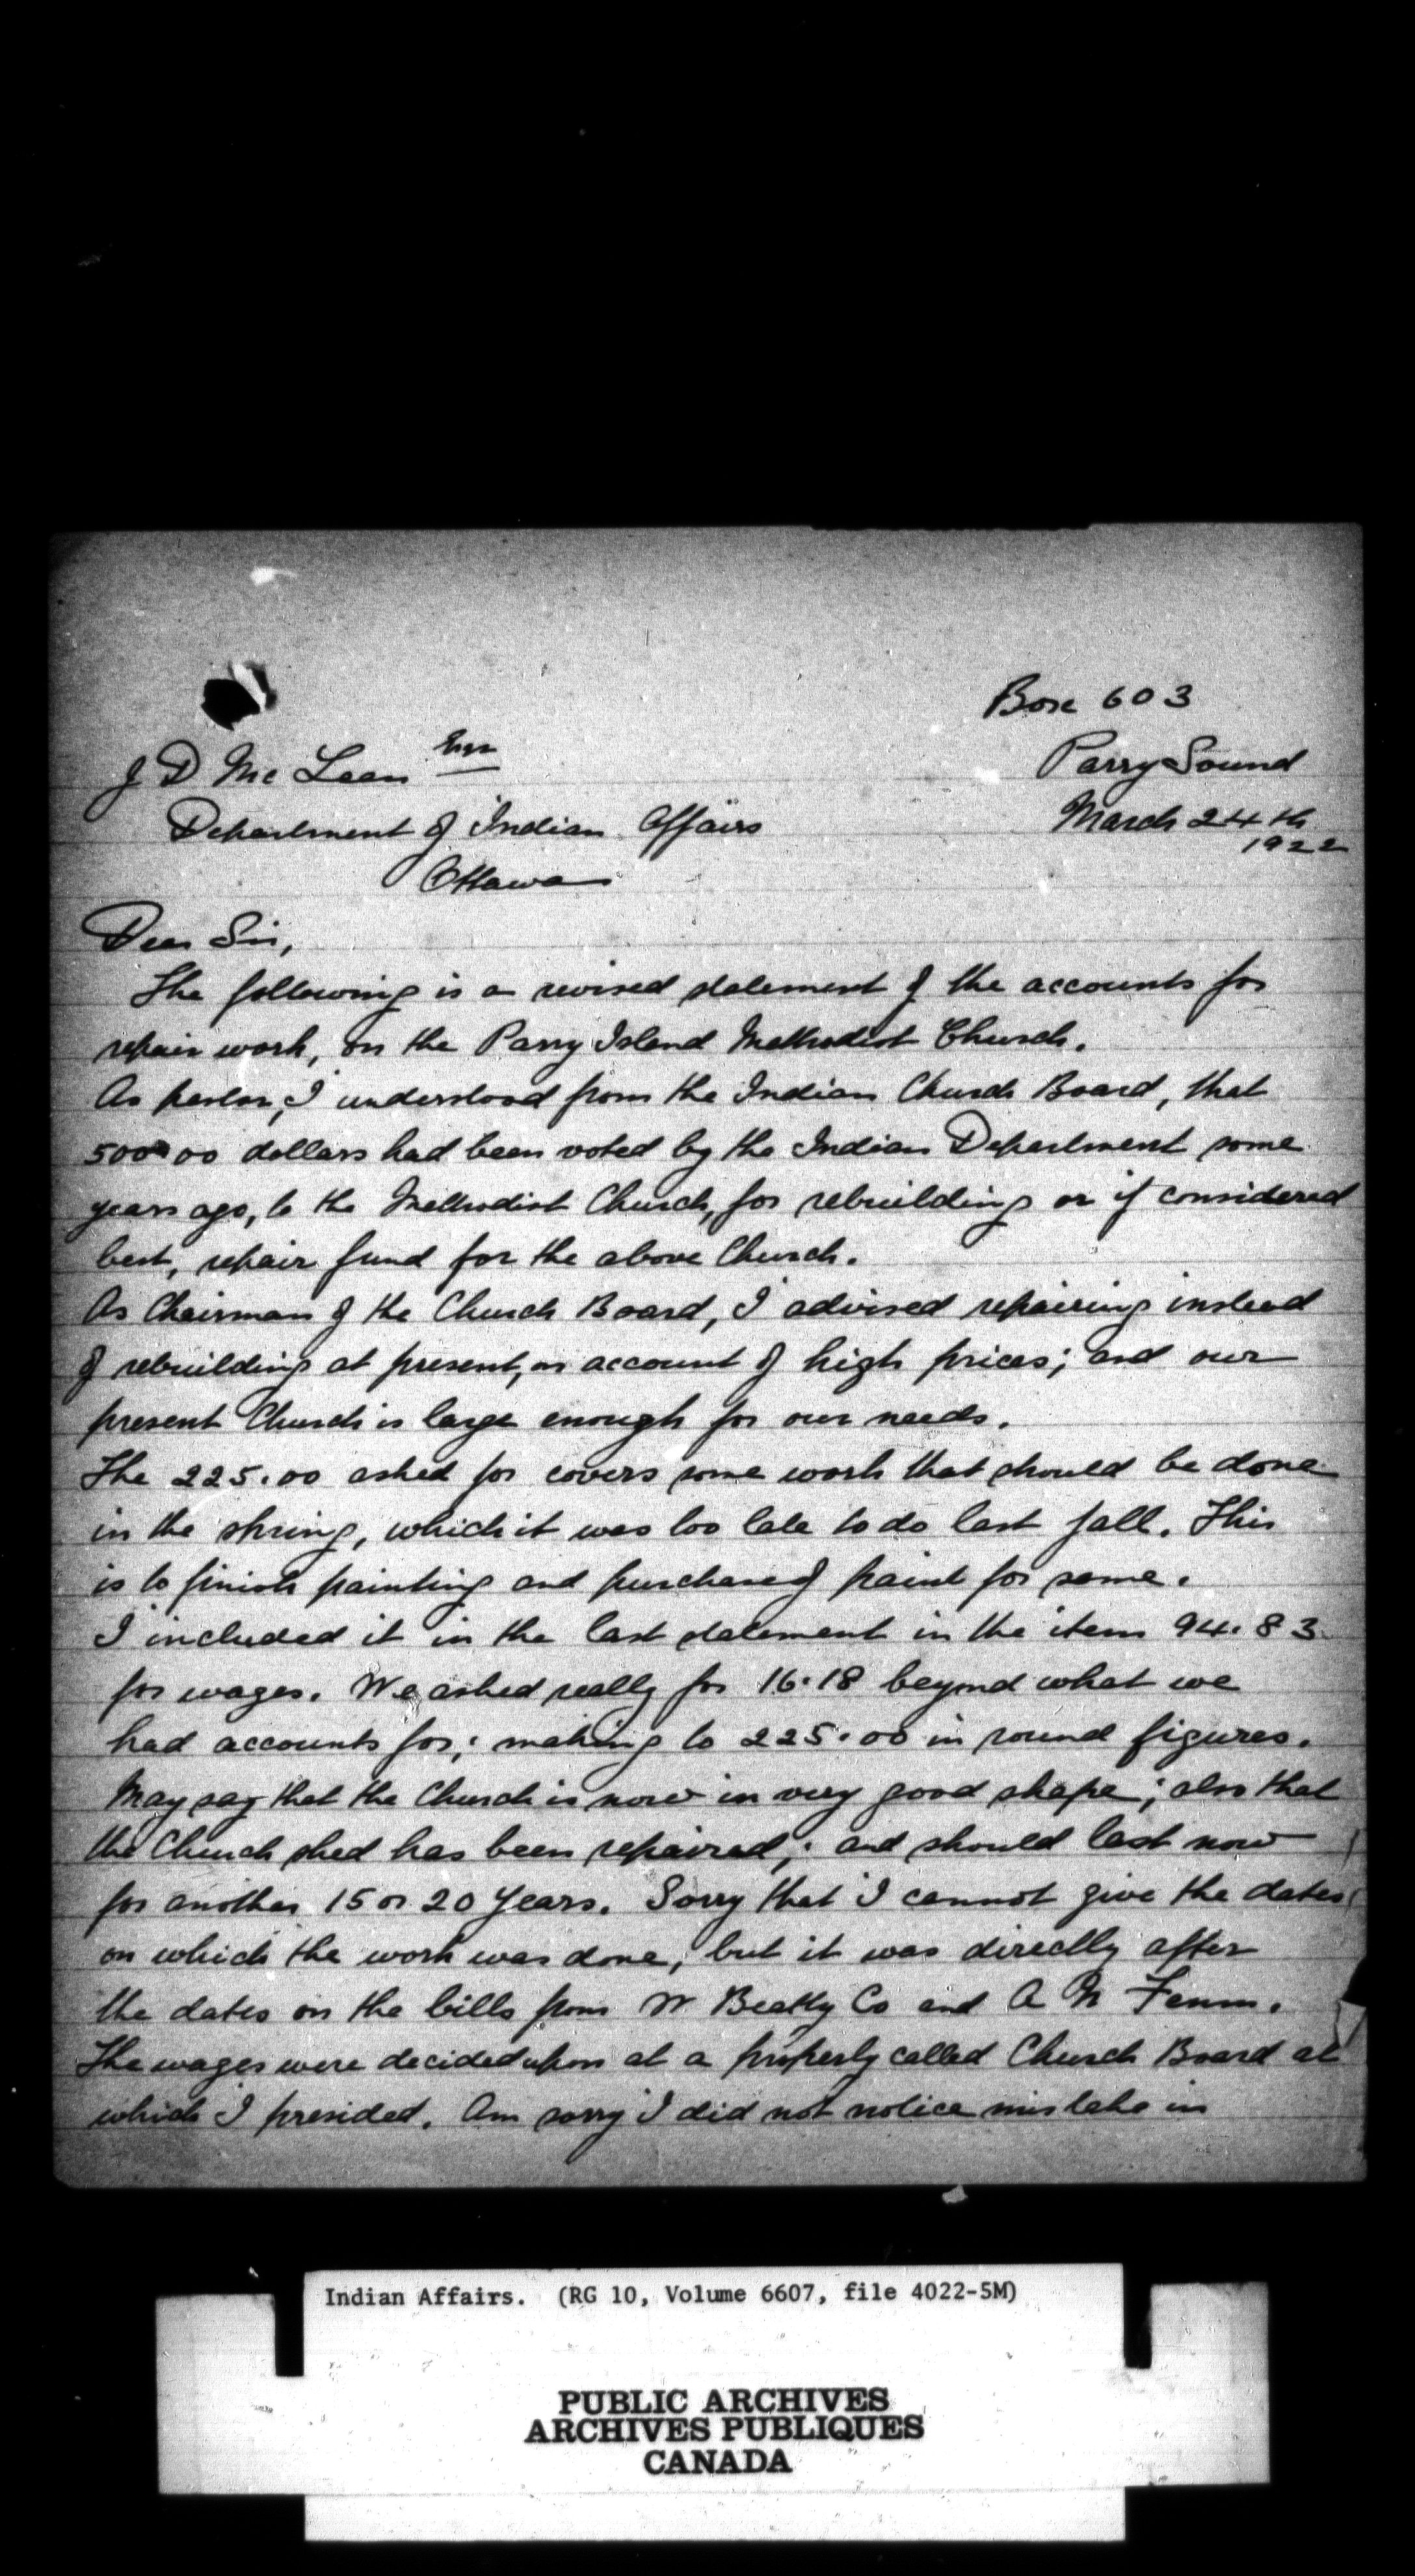 Box 603
J D Mc Lean Esq
Parry Sound
Department of Indian Affairs
March 24th
1922
Ottawa
Dear Sir,
The following is a revised statement of the accounts for
repair work, on the Parry Island Methodist Church.
As pastor, I understood from the Indian Church Board, that
500.00 dollars had been voted by the Indian Department some
years ago, to the Methodist Church, for rebuilding or if considered
best, repair fund for the above Church.
As Chairman of the Church Board, I advised repairing instead
of rebuilding at present, on account of high prices; and our
present Church is large enough for our needs.
The 225.00 asked for covers some work that should be done
in the spring, which it was too late to do last fall. This
is to finish painting and purchase of paint for same.
I included it in the last statement in the item 94.83
for wages. We asked really for 16.18 beyond what we
had accounts for; making to 225.00 in round figures.
May say that the Church is now in very good shape; also that
the Church shed has been repaired; and should last now
for another 15 or 20 years. Sorry that I cannot give the dates
on which the work was done, but it was directly after
the dates on the bills from W Beatty Co and A N Fenn.
The wages were decided upon at a properly called Church Board at
which I presided. Am sorry I did not notice mistake in
Indian Affairs. (RG 10, Volume 6607, file 4022-5M)
PUBLIC ARCHIVES
ARCHIVES PUBLIQUES
CANADA